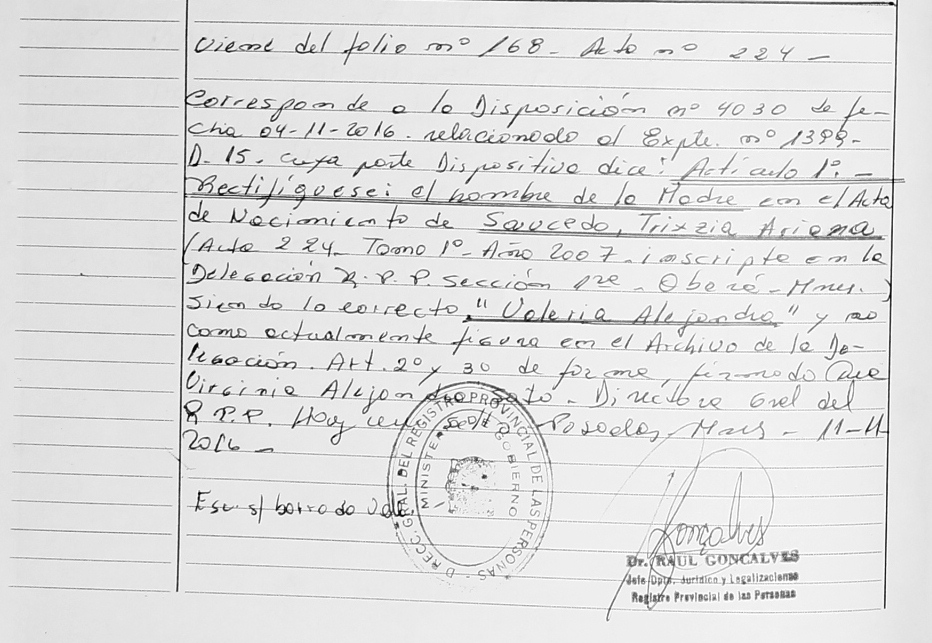 Viene del folio nº 168- Acta nº 224-
Corresponde a la Disposición nº 4030 de fe-
cha 04-11-2016. relacionado al Expte. nº 1399-
D-15. cuya parte Dispositiva dice: Artículo 1º.-
Rectifíquese: el nombre de la Madre en el Acta
de Nacimiento de Saucedo, Trixzia Ariana
(Acta 224- Tomo 1º- Año 2007- inscripta en la
Delegación R.P.P. sección 1ra - Oberá - Mnes.)
Siendo lo correcto "Valeria Alejandra" y no
como actualmente figura en el Archivo de la De-
legación. Art. 2º y 3º de forma, firmado Dra
Virginia Alejandra - Directora Gral del
R.P.P. Hoy Posadas, Mnes - 11-11-
2016 -
Esc. s/ borrado Vale.
DIRECC. GRAL. DEL REGISTRO PROVINCIAL DE LAS PERSONAS
MINISTERIO GOBIERNO
Gonçalves
Dr. RAUL GONCALVES
Jefe Dpto. Jurídico y Legalizaciones
Registro Provincial de las Personas